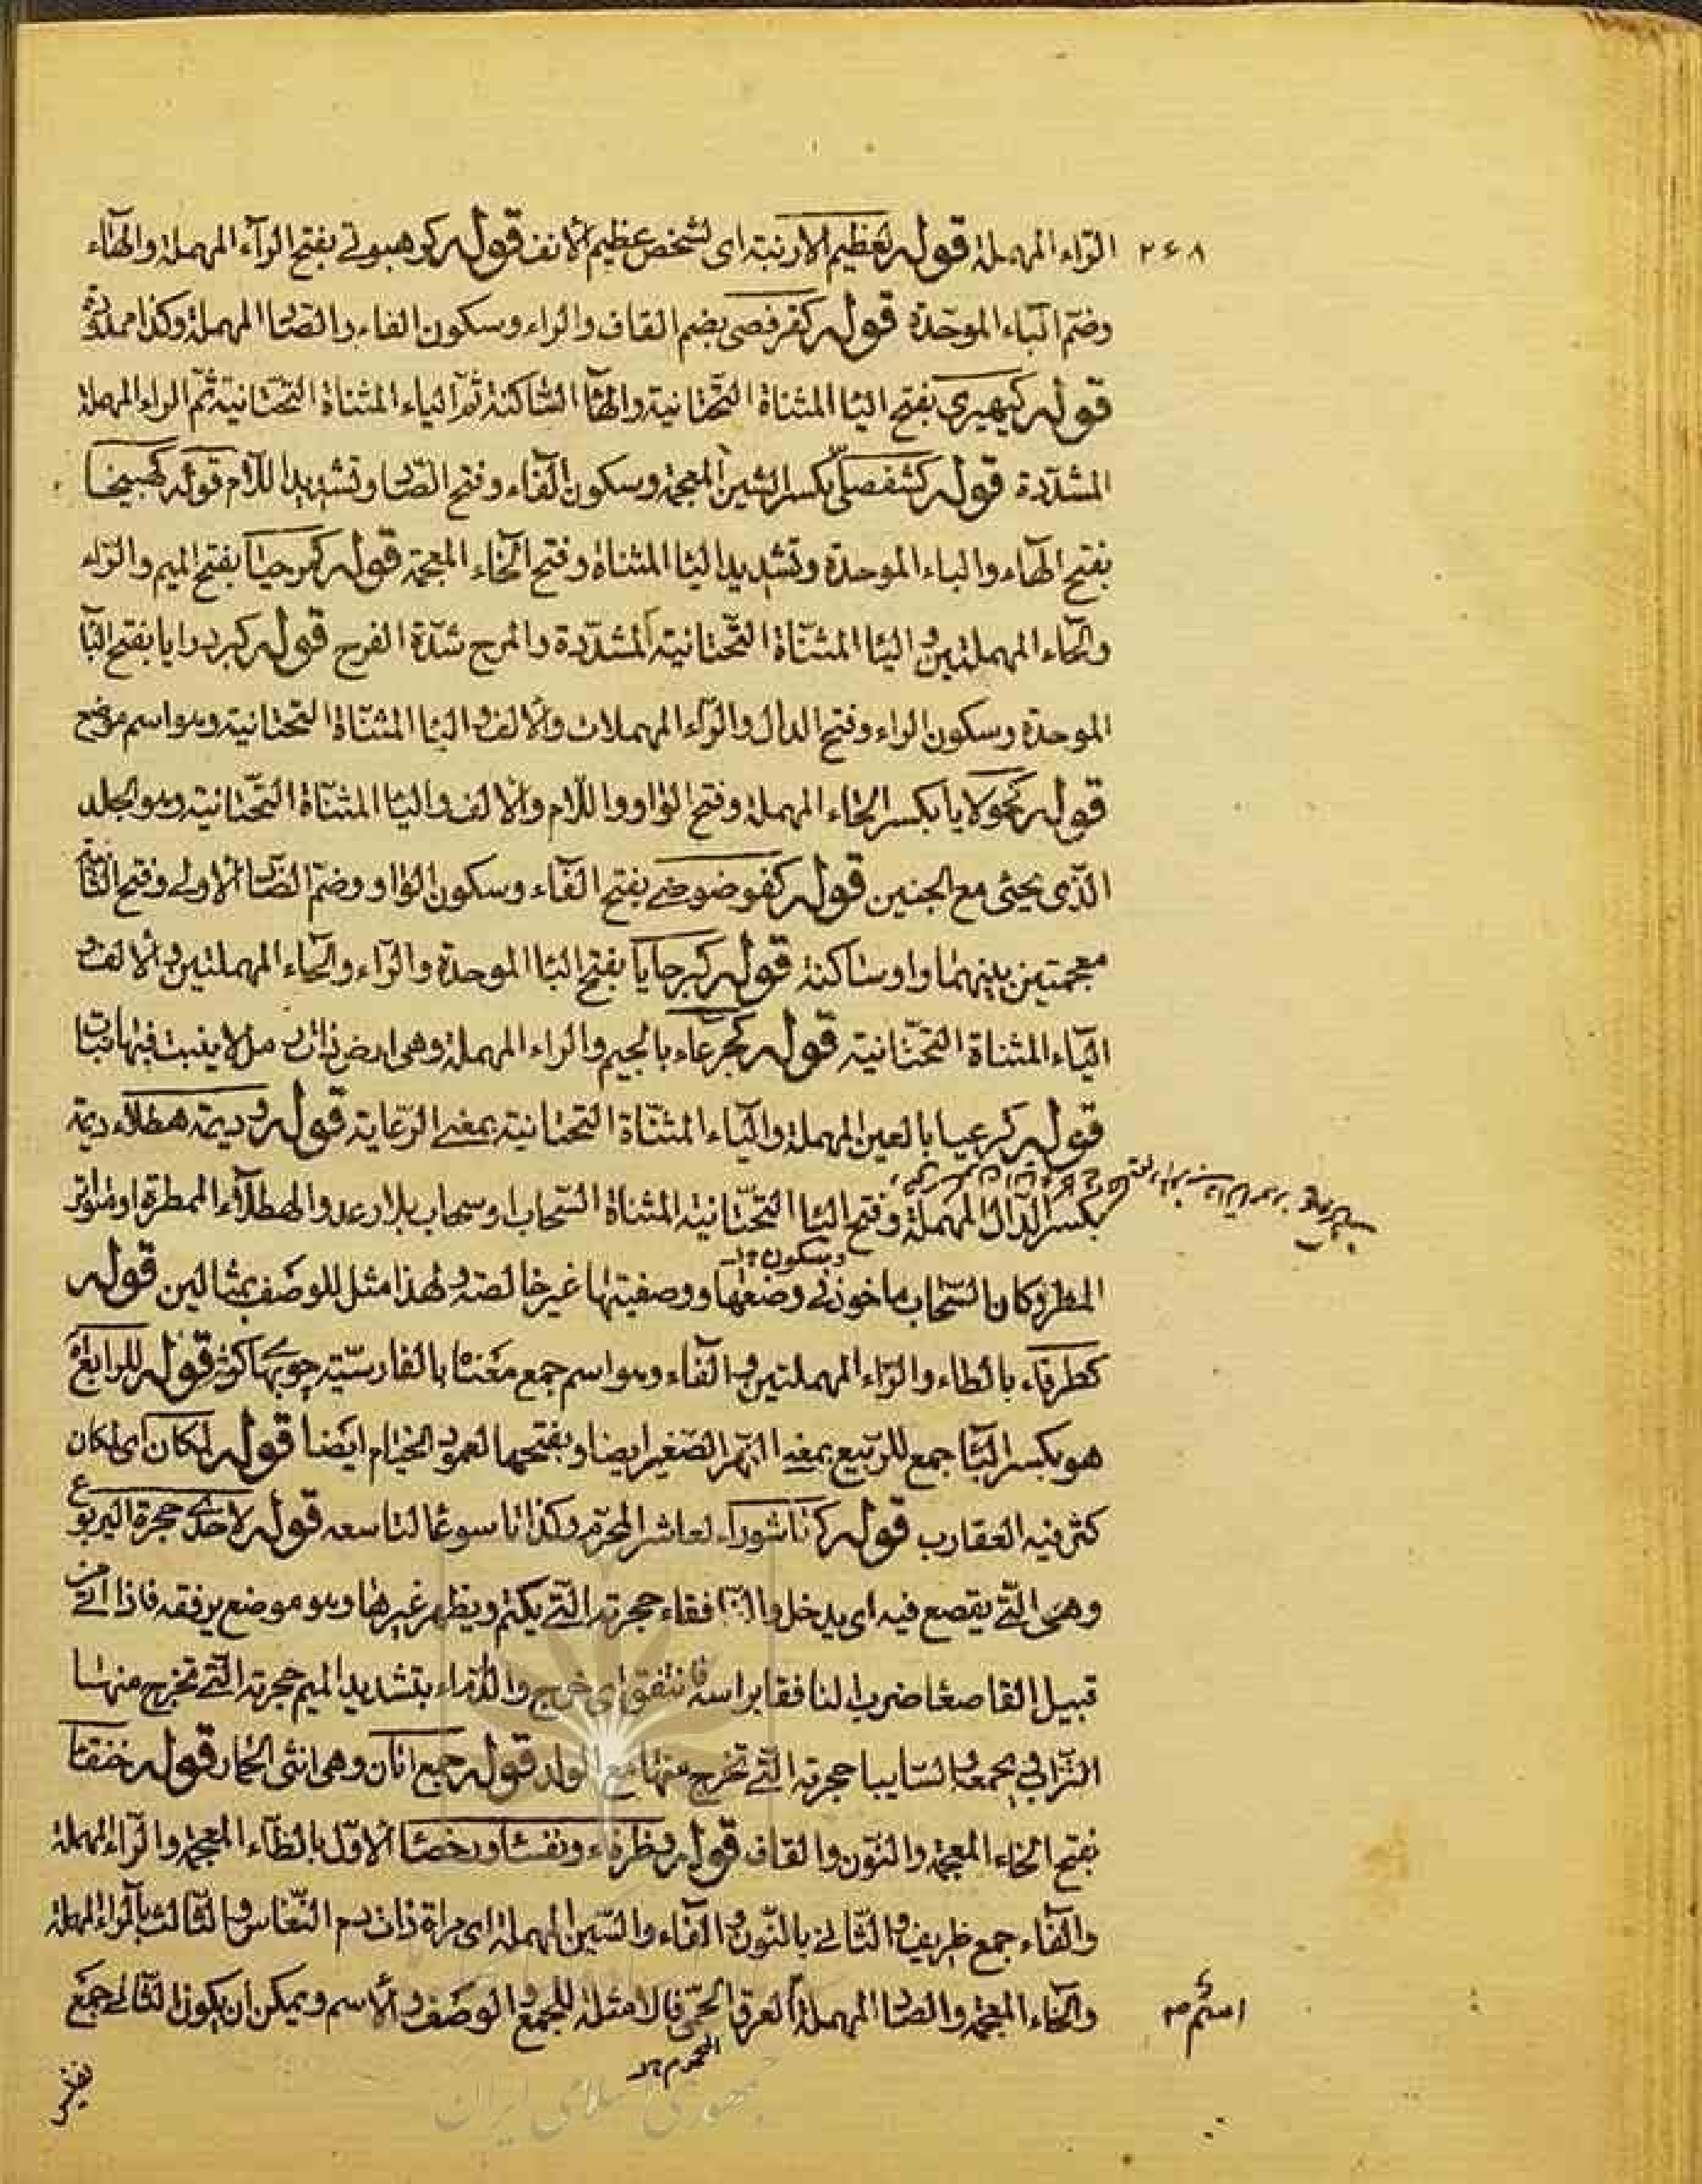 ۲۶۸
الرّاء المهملة قوله لعظيم الارنبة اى لشخص عظيم الانف قوله كرهبوتى بفتح الرآء المهملة والهآء
وضمّ البّاء الموحّدة قوله كقرفصى بضم القاف والراء وسكون الفاء والصّاد المهملة وكذا ممدّة
قوله كيهيرى بفتح اليا المثناة التّحتانية والهآ السّاكنة ثم الياء المثناة التّحتانية ثم الراء المهملة
المشدّدة قوله كشفصلّى بكسر الشين المعجمة وسكون الفاء وفتح الصّاد وتشديد اللام قوله كهبيخا
بفتح الهاء والباء الموحدة وتشديد اليا المثناة وفتح الخاء المعجمة قوله كمرحيا بفتح الميم والرّاء
والحاء المهملتين و اليا المثنّاة التّحتانية المشدّدة والمرح شدّة الفرح قوله كبردرايا بفتح البا
الموحدة وسكون الراء وفتح الدال والرّاء المهملات والالف و اليا المثنّاة التحتانية وهو اسم موضع
قوله كحولايا بكسر الحاء المهملة وفتح الواو واللام والالف واليا المثنّاة التّحتانية وهو الجلد
الذى يجئ مع الجنين قوله كفوضوضى بفتح الفآء وسكون الواو وضمّ الضّاد الاولى وفتح الثّانية
معجمتين بينهما واو ساكنة قوله كبرحايا بفتح البا الموحدة والرّاء والحاء المهملتين والالف و
اليّاء المثناة التّحتانية قوله كجرعاء بالجيم والراء المهملة وهى ارض ذات رمل لا ينبت فيها نبات
قوله كرعيا بالعين المهملة والياء المثنّاة التحتانية بمعنى الرّعاية قوله وديمة هطلاء ديمة
بكسر الدال المهملة وفتح اليا التّحتانية المثناة السّحاب او سحاب بلا رعد والهطلاء الممطرة او متواتر
وسكون
المطر وكان السّحاب ماخوذ فى وضعها ووصفيتها غير خالصة و لهذا مثل للوصف بمثالين قوله
كطرفاء بالطاء والرّاء المهملتين و الفاء وهو اسم جمع معناه بالفارسيّة قوله للرابع
هو بكسر البّا جمع للربيع بمعنى النهر الصّغير ايضا وبفتحها لعمود الخيام ايضا قوله لمكان اى لمكان
كثر فيه العقارب قوله كتاشوراء لعاشر المحرّم وكذا تاسوعا لتاسعه قوله لاحدى حجرة اليربوع
وهى الّتى يقصع فيه اى يدخل والنافقاء حجرته الّتى يكتم ويظهر غيرها وهو موضع يرفقه فاذا اتى من
قبيل القاصعا ضرب النافقا براسه فانتفق اى خرج والدّمّاء بتشديد الميم حجرته الّتى تخرج منها
التّراب يجمعه و السّابيا حجرته الّتى تخرج منها مع الولد قوله جمع اتان وهى انثى الحمار قوله خنفقا
بفتح الخاء المعجمة والنون والقاف قوله وظرفاء ونفساء ورخصا الاوّل بالظّاء المعجمة والرّاء المهملة
والفاء جمع ظريف و الثّانى بالنّون و الفاء والسّين المهملة اى مراة ذات دم النّفاس و الثّالث بالراء المهملة
والحاء المعجمة والصاد المهملة العرق الحمّى فالامثلة للجمع و الوصف و الاسم ويمكن ان يكون الثّانى جمع
المحموم